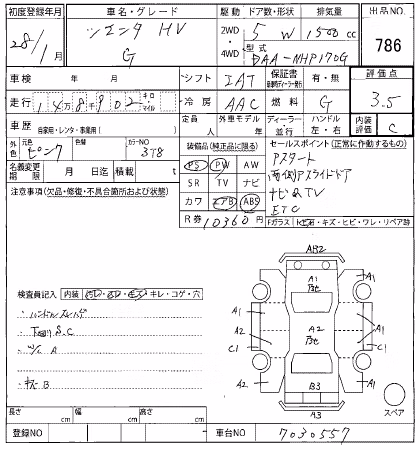 初度登録年月 車名・グレード 駆動 ドア数・形状 排気量 出品NO.
28/1月 シエンタ HV 2WD 5 W 1500cc 786
G 4WD 型式 DAA-NHP170G
車検 年 月 シフト IAT 保証書 有・無 評価点
走行 148902 キロ マイル 冷房 AAC 燃料 G 3.5
車歴 自家用・レンタ・事業用( ) 定員 人 外車モデル 年 ディーラー 並行 ハンドル 左・右 内装評価 C
外色 元色 ピンク 色替 カラーNO 3T8 装備品(純正品に限る) セールスポイント(正常に作動するもの)
名義変更期限 月 日迄 積載 t PS PW AW スマート
注意事項(欠品・修復・不具合箇所および状態) SR TV ナビ 両側Aスライドドア
カワ エアB ABS ナビ&TV
R券 10360円 ETC
Fガラス 石・キズ・ヒビ・ワレ・リペア跡
AB2
A1
A1 A1
検査員記入 内装 キレ・コゲ・穴
A1
ハンドルスレ
A2 A2 A2
下回りS.C
C1 C1
A
A2 A2
B3
キズB
A3 スペア
長さ cm 幅 cm 高さ cm
登録NO 車台NO 7030557